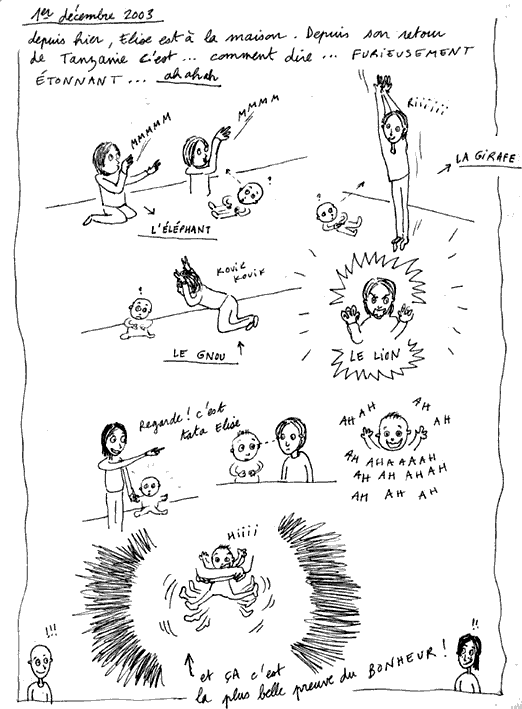 1er décembre 2003
depuis hier, Elise est à la maison. Depuis son retour
de Tanzanie c'est... comment dire... FURIEUSEMENT
ÉTONNANT... ah ah ah
MMMMM
MMMM
RIIIIII
LA GIRAFE
?
?
L'ÉLÉPHANT
KOUIK
KOUIK
?
LE GNOU
LE LION
Regarde! c'est
tata Elise
AH AH
AH
AH
AH AHAAAAAH
AH AH AHAH
AH AH AH
HIIIII
!!!
!!
et ÇA c'est
la plus belle preuve du BONHEUR!